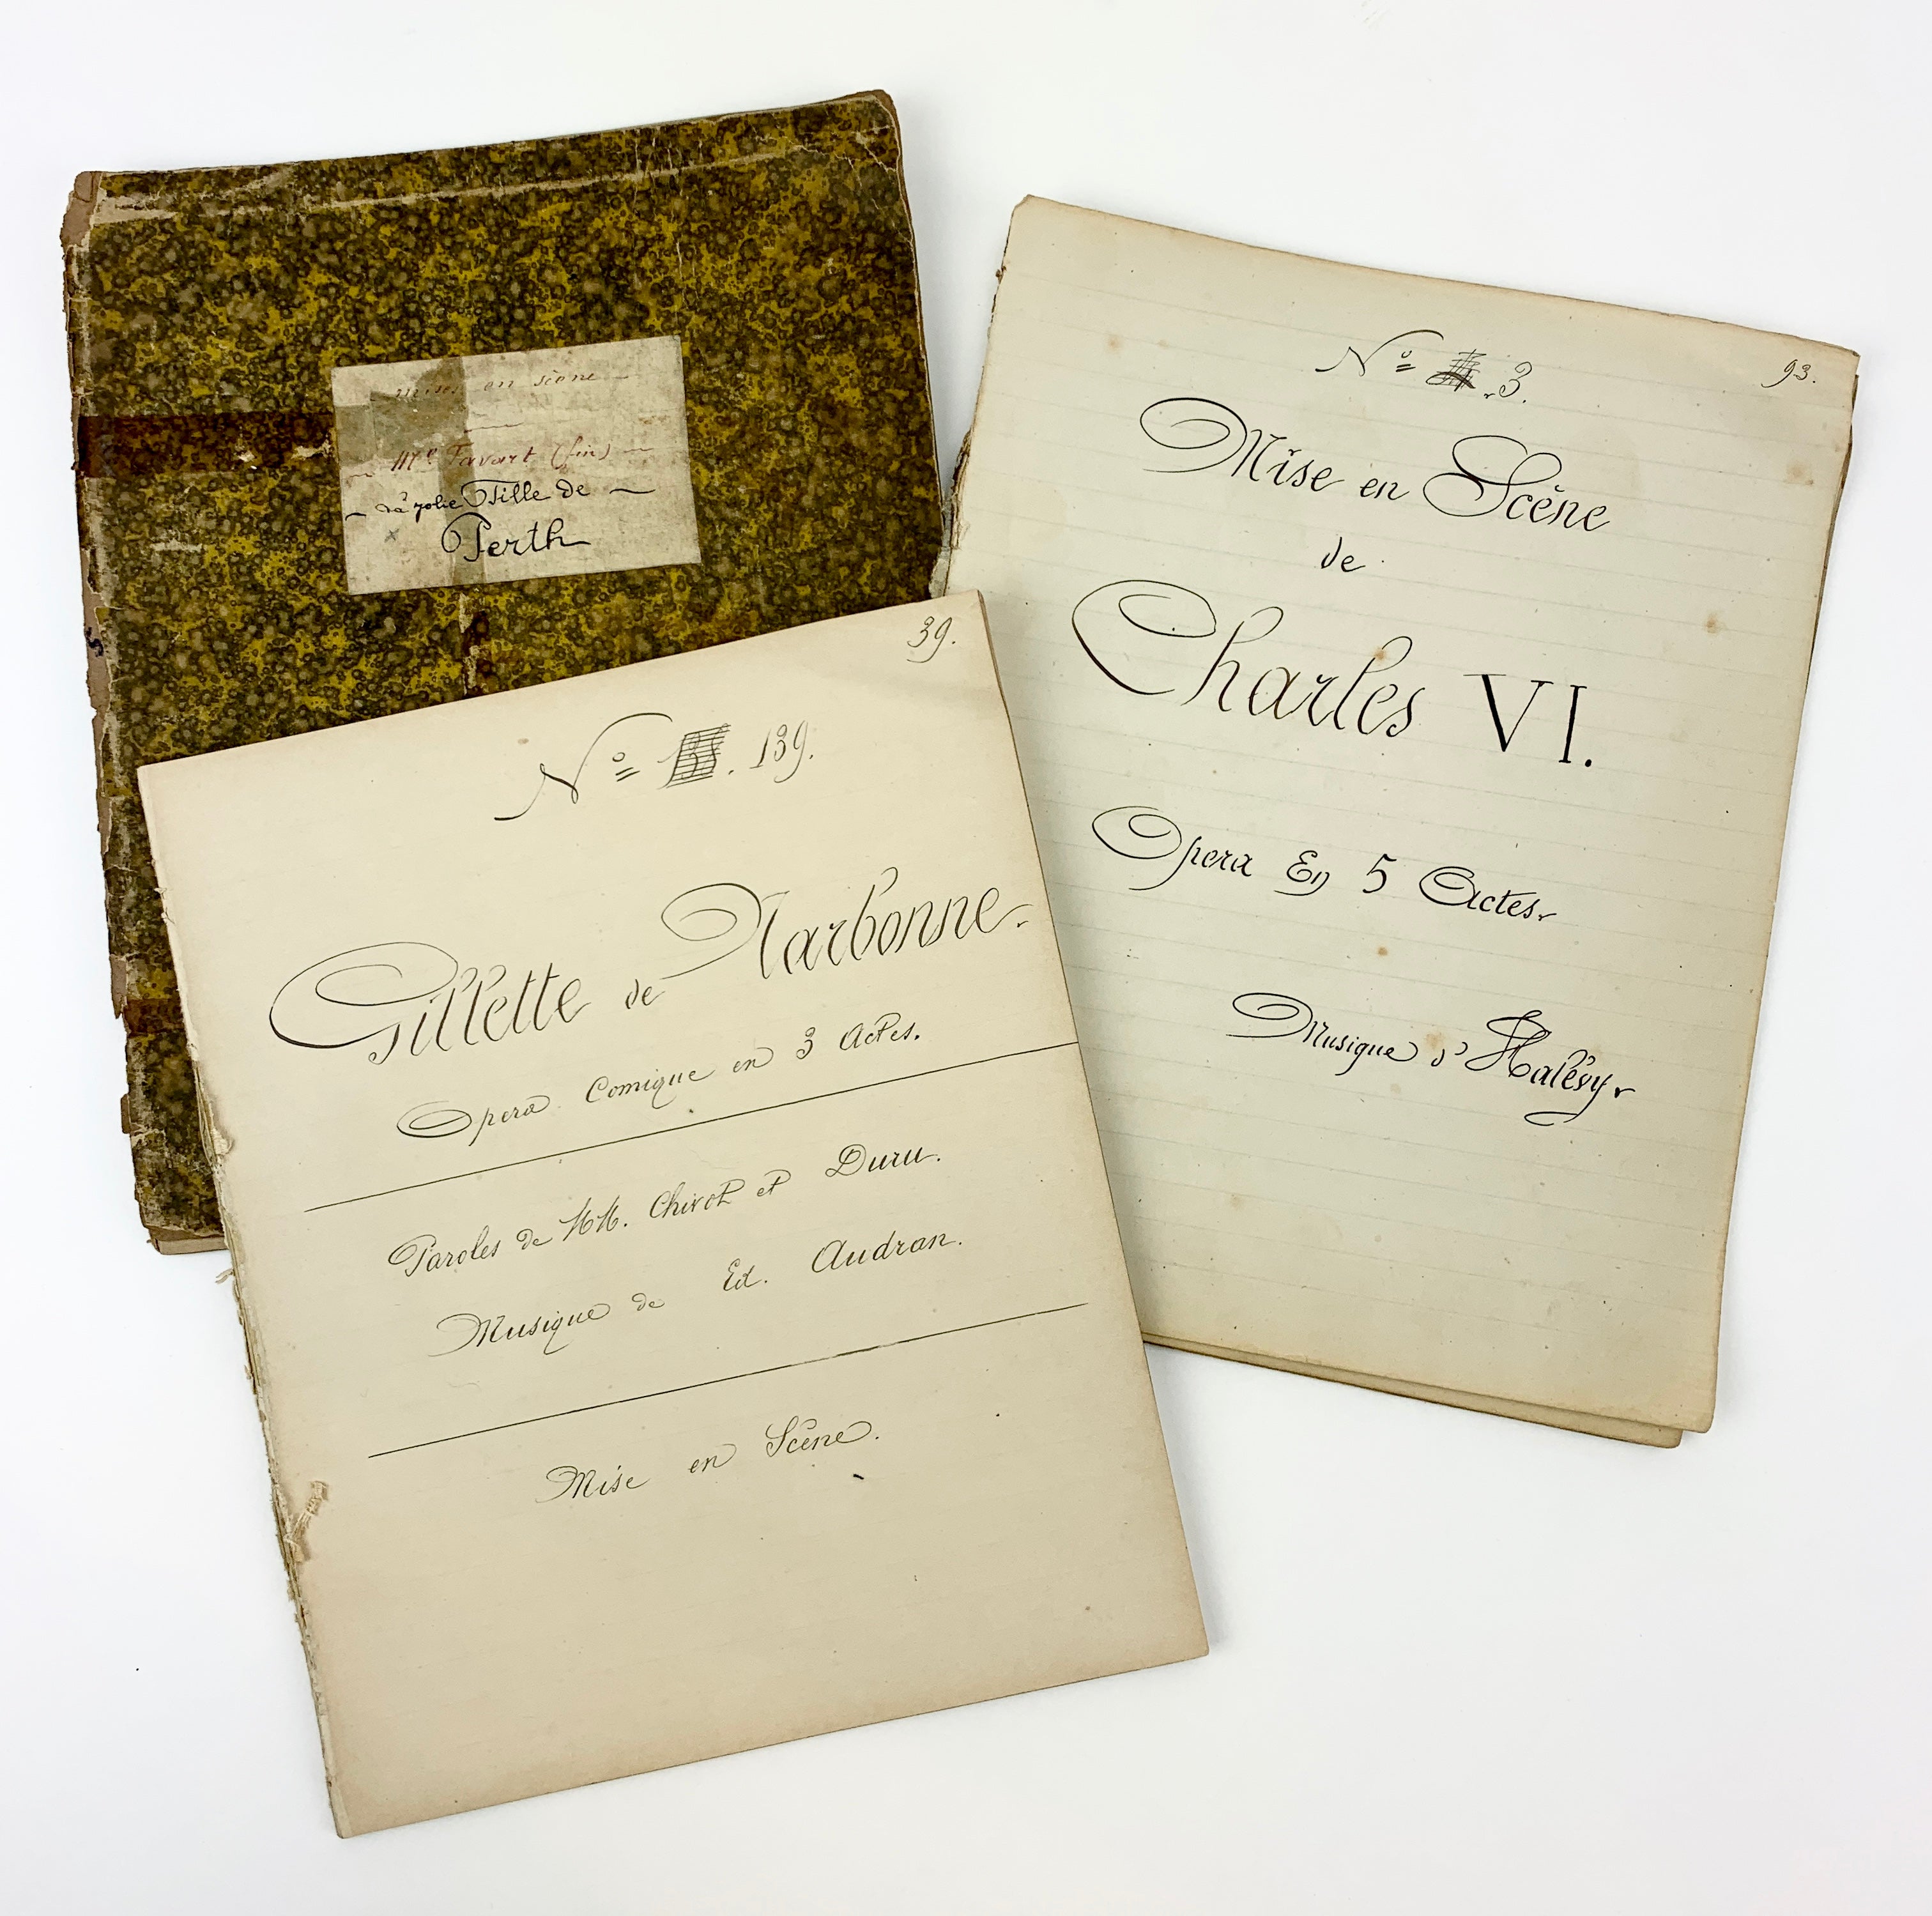 mises en scène
Mᵉ Favart (fin)
La jolie Fille de
Perth
39.
Nº 139.
Gillette de Narbonne.
Opera Comique en 3 Actes.
Paroles de MM. Chivot et Duru.
Musique de Ed. Audran.
Mise en Scène.
93.
Nº 3.
Mise en Scène
de
Charles VI.
Opera En 5 Actes.
Musique d'Halévy.